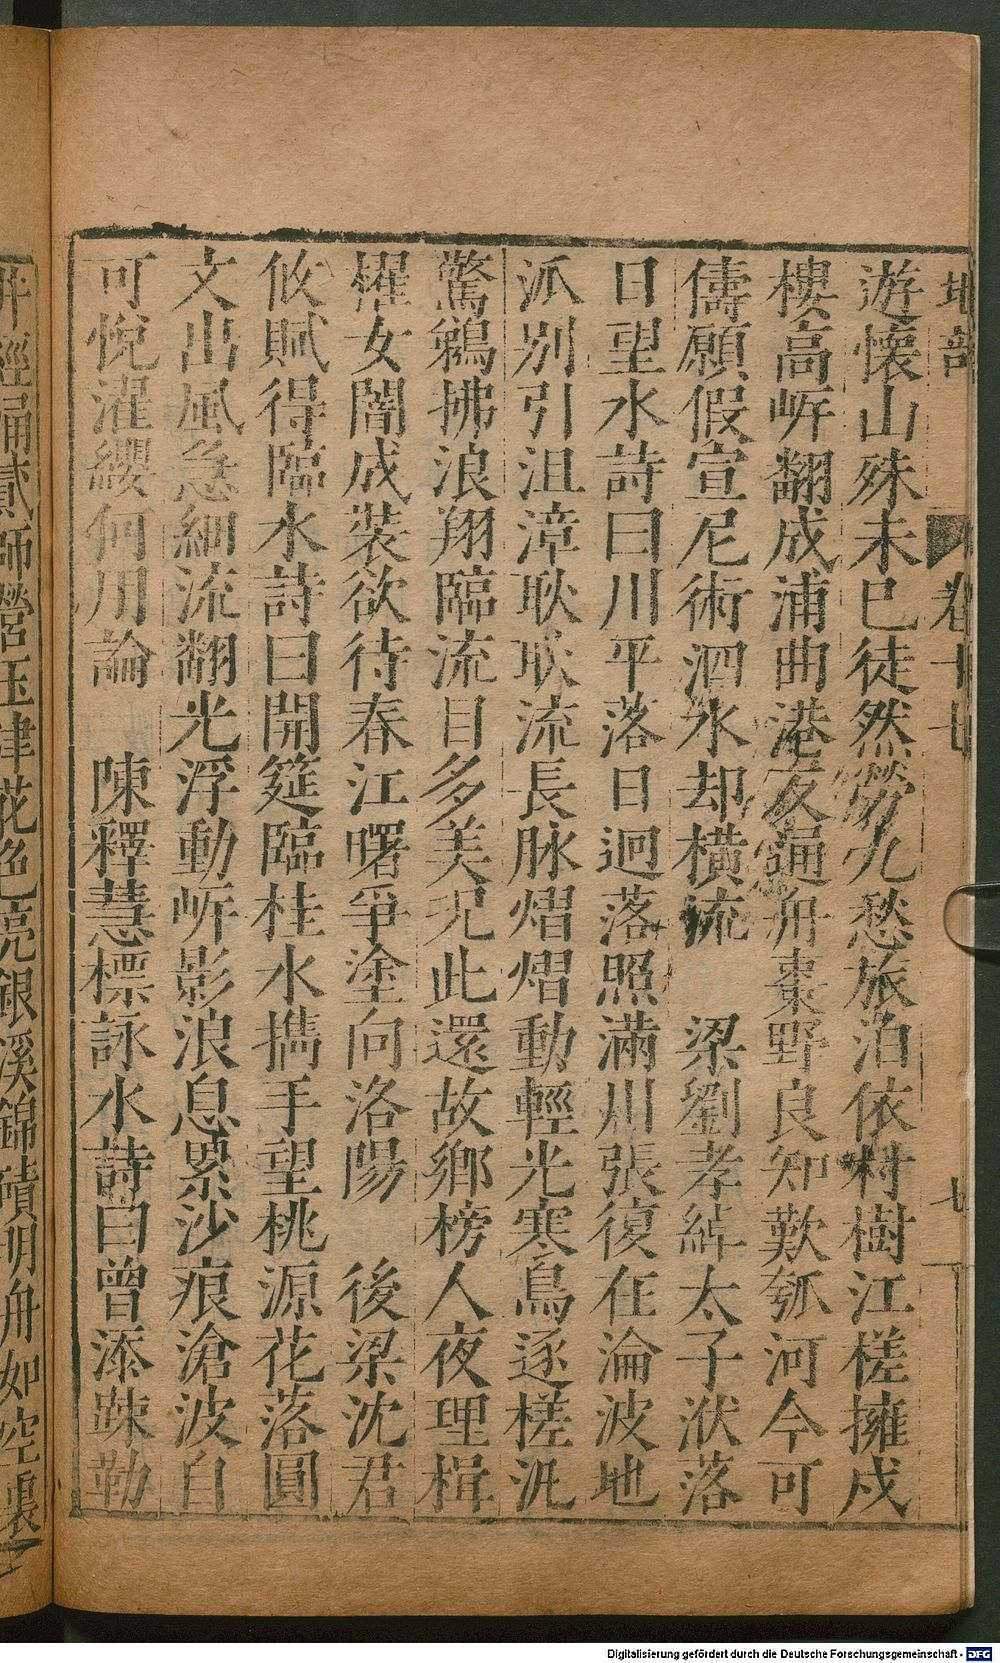 地部
卷十七
七
遊懷山殊未已徒然勞九愁旅泊依村樹江槎擁戍
樓高岍翻成浦曲港反通舟棗野良知歎瓠河今可
儔願假宣尼術泗水却橫流 梁劉孝綽太子洑落
日望水詩曰川平落日迥落照滿川張復在淪波地
派別引沮漳耿耿流長脉熠熠動輕光寒鳥逐槎汎
驚鵜拂浪翔臨流目多美况此還故鄉榜人夜理楫
櫂女闇成裝欲待春江曙爭塗向洛陽 後梁沈君
攸賦得臨水詩曰開筵臨桂水擕手望桃源花落圓
文出風急細流翻光浮動岍影浪息累沙痕滄波自
可悅濯纓何用論 陳釋慧標詠水詩曰曾添踈勒
井經涌貳師營玉津花色亮銀溪錦磧明舟如空裏
Digitalisierung gefördert durch die Deutsche Forschungsgemeinschaft - DFG